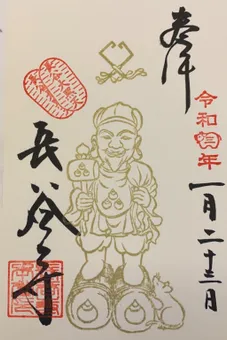 奉拝
令和年
一月二十三日
長谷寺